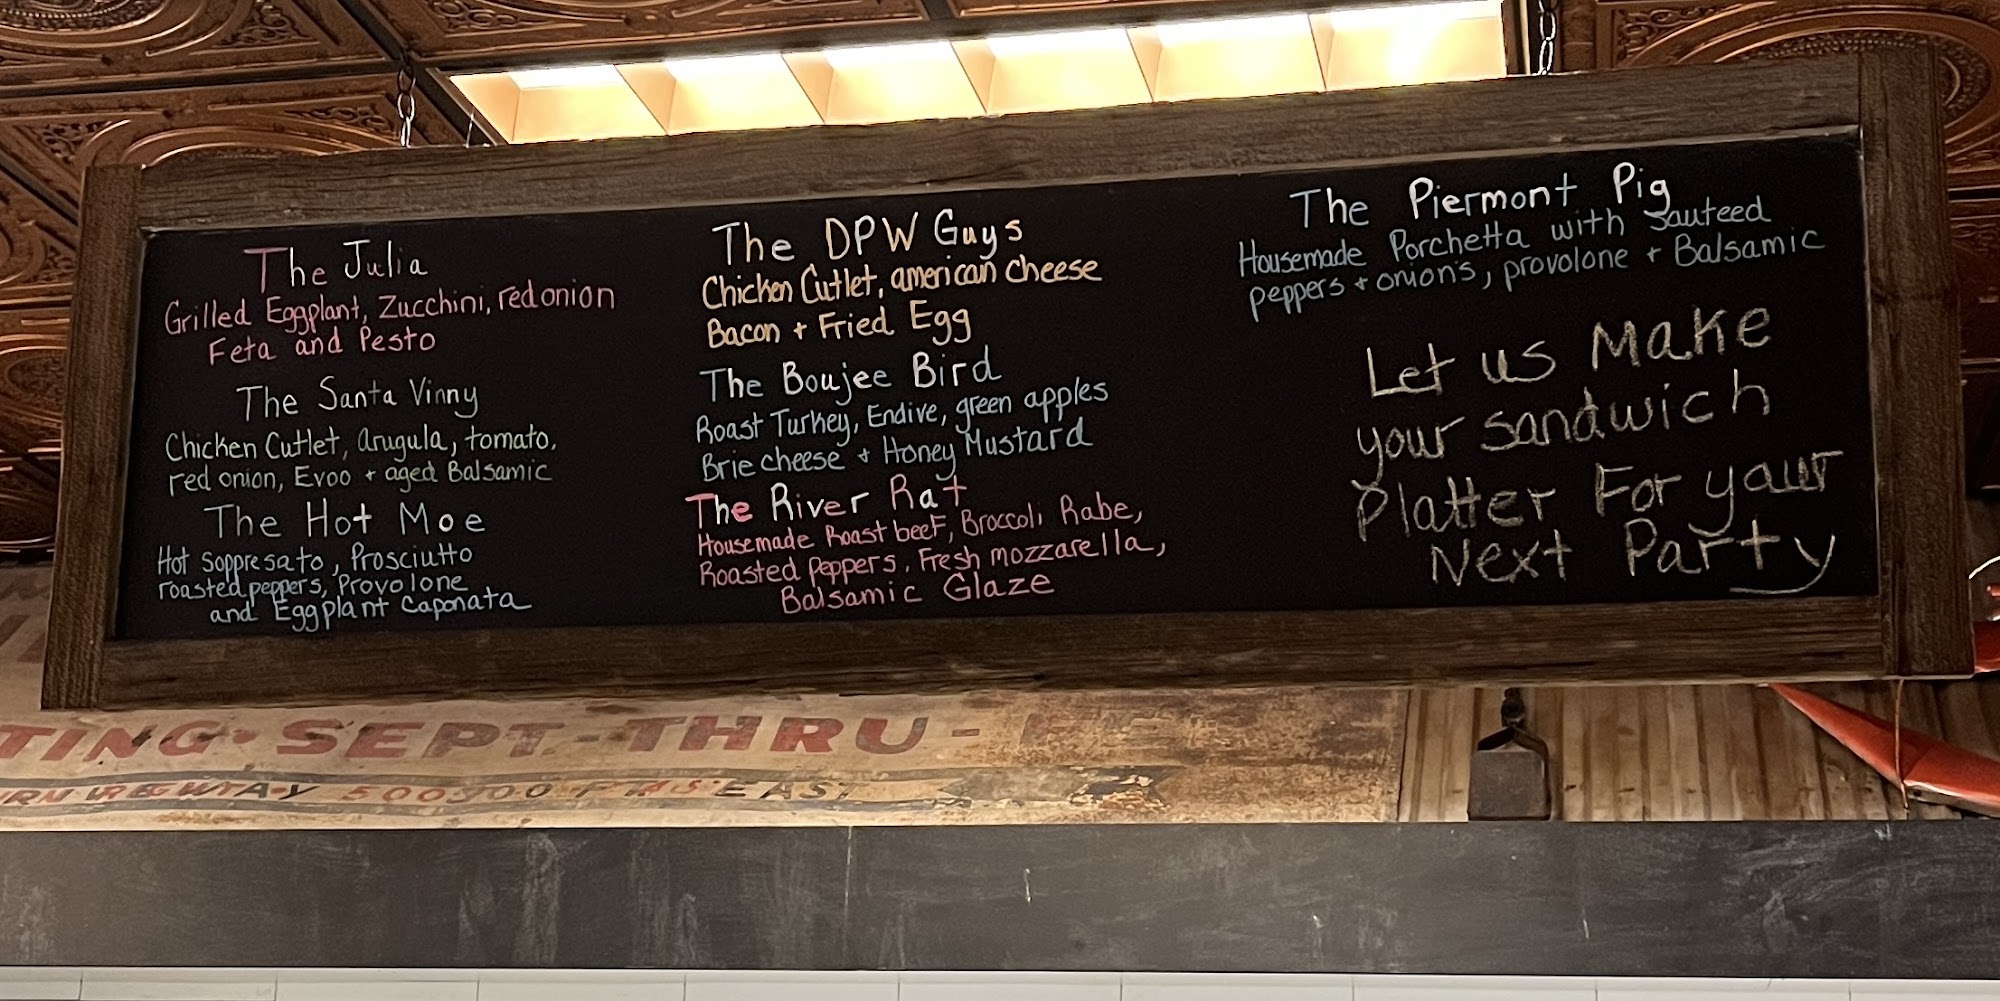 The Julia
Grilled Eggplant, Zucchini, red onion
Feta and Pesto
The Santa Vinny
Chicken Cutlet, Arugula, tomato,
red onion, Evoo + aged Balsamic
The Hot Moe
Hot Soppresato, Prosciutto
roasted peppers, Provolone
and Eggplant Caponata
The DPW Guys
Chicken Cutlet, american cheese
Bacon + Fried Egg
The Boujee Bird
Roast Turkey, Endive, green apples
Brie cheese + Honey Mustard
The River Rat
Housemade Roast beef, Broccoli Rabe,
Roasted Peppers, Fresh mozzarella,
Balsamic Glaze
The Piermont Pig
Housemade Porchetta with Sauteed
peppers + onions, provolone + Balsamic
Let us Make
your sandwich
Platter For your
Next Party
TING • SEPT-THRU-
EAST